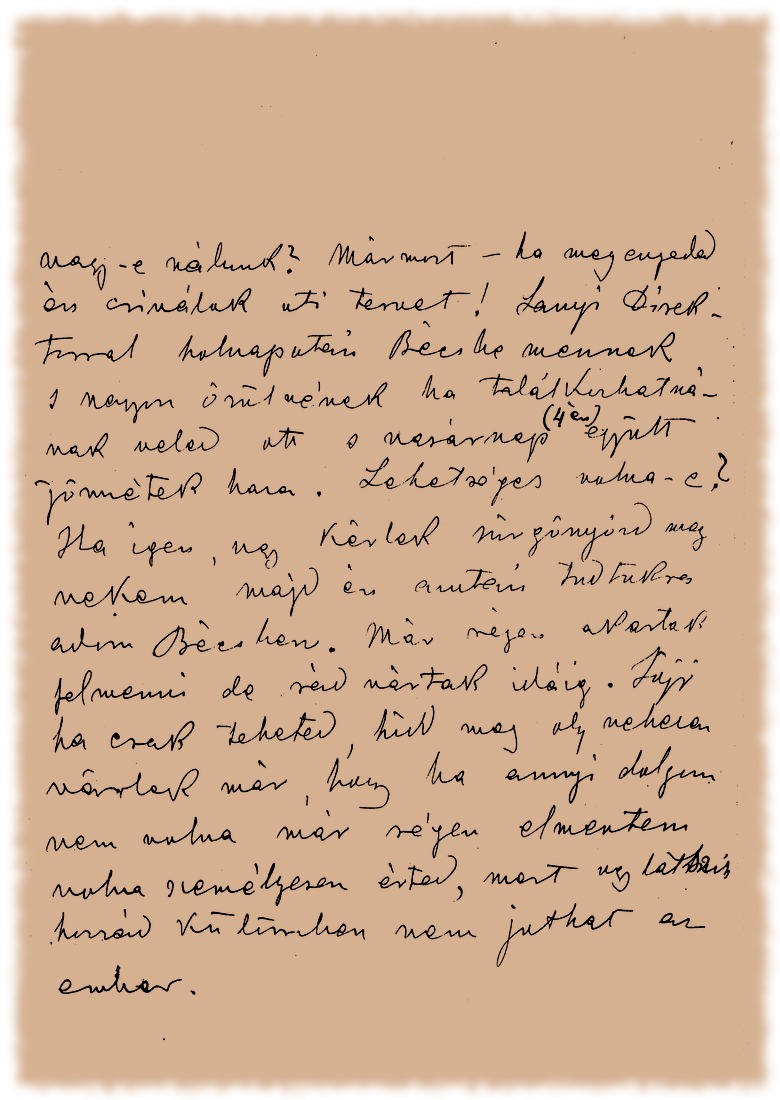 vagy-e nálunk? Mármost – ha megengeded
én csinálok uti tervet! Lanyi Direk-
torral holnapután Bécsbe mennek
s nagyon örülnének ha találkozhatná-
nak veled ott s vasárnap (4én) együtt
jönnétek haza. Lehetséges volna-e?
Ha igen, ugy kérlek sürgönyözd meg
nekem majd én azután tudtukra
adom Bécsben. Már régen akartak
felmenni de réád vártak idáig.
ha csak teheted, tüd meg oly nehezen
várlak már, hogy ha annyi dolgom
nem volna már régen elmentem
volna személyesen érted, mert ugy látszik
hozzád különben nem juthat az
ember.